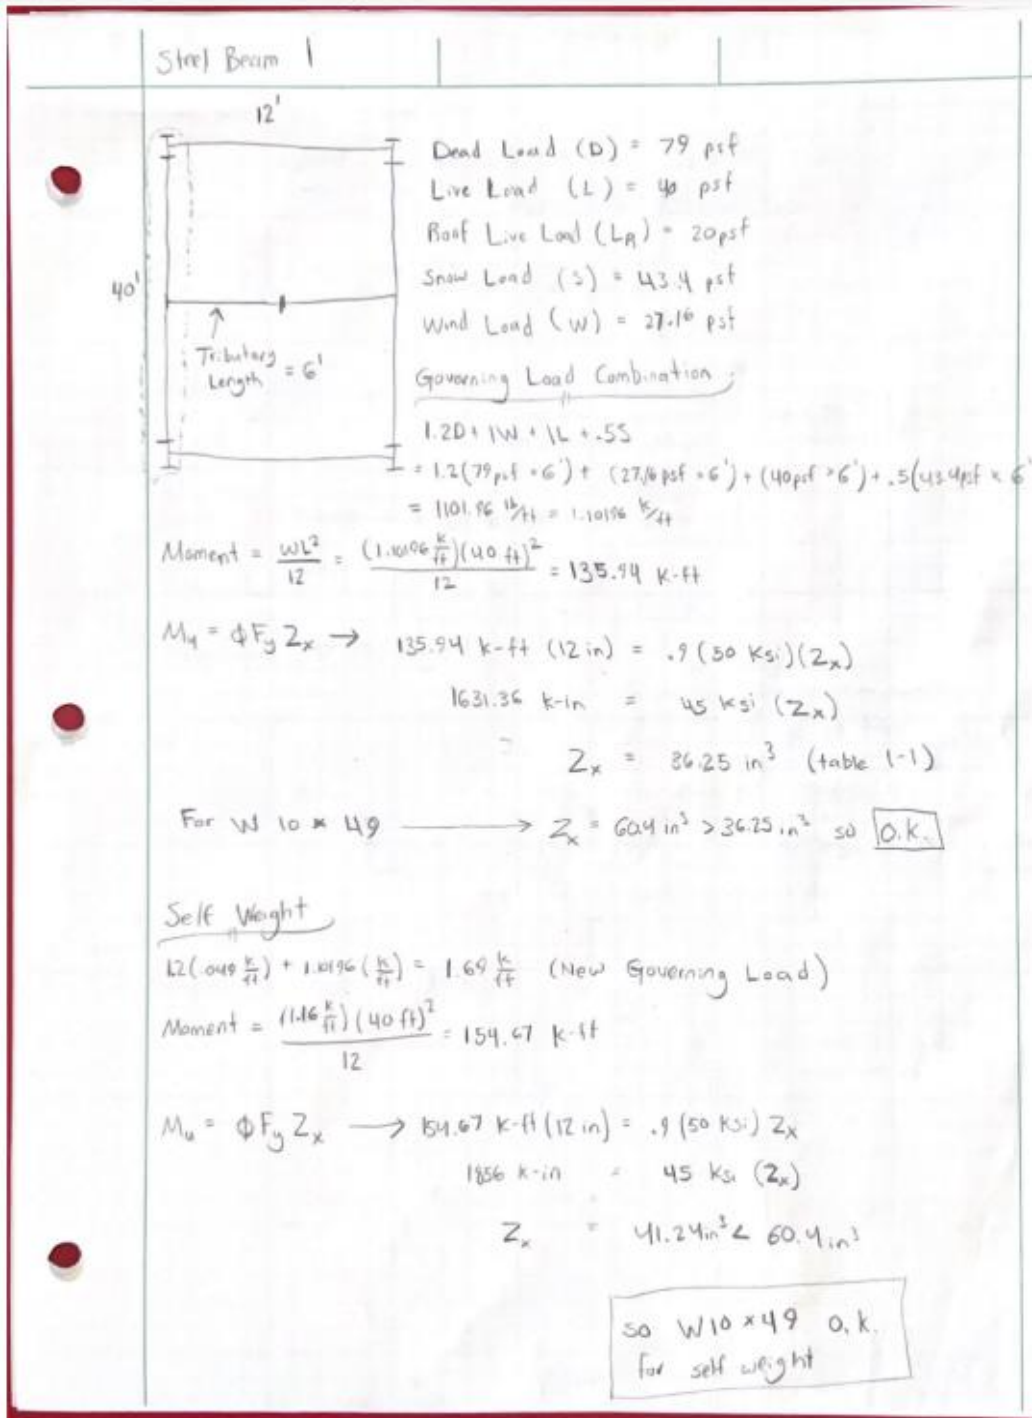 Steel Beam 1
12'
40'
Tributary
Length = 6'
Dead Load (D) = 79 psf
Live Load (L) = 40 psf
Roof Live Load (LR) = 20psf
Snow Load (S) = 43.4 psf
Wind Load (W) = 27.16 psf
Governing Load Combination
1.2D + 1W + 1L + .5S
= 1.2(79psf × 6') + (27.16 psf × 6') + (40psf × 6') + .5(43.4psf × 6'
= 1101.96 lb/ft = 1.10196 k/ft
Moment = WL²/12 = (1.10196 k/ft)(40 ft)²/12 = 135.94 k-ft
Mu = ΦFyZx → 135.94 k-ft (12 in) = .9 (50 Ksi)(Zx)
1631.36 k-in = 45 ksi (Zx)
Zx = 36.25 in³ (table 1-1)
For W 10 × 49 → Zx = 60.4 in³ > 36.25 in³ so O.K.
Self Weight
1.2(.049 k/ft) + 1.10196 (k/ft) = 1.69 k/ft (New Governing Load)
Moment = (1.16 k/ft)(40 ft)²/12 = 154.67 k-ft
Mu = ΦFyZx → 154.67 k-ft (12 in) = .9 (50 ksi) Zx
1856 k-in = 45 Ksi (Zx)
Zx = 41.24in³ < 60.4in³
so W10×49 O.K.
for self weight